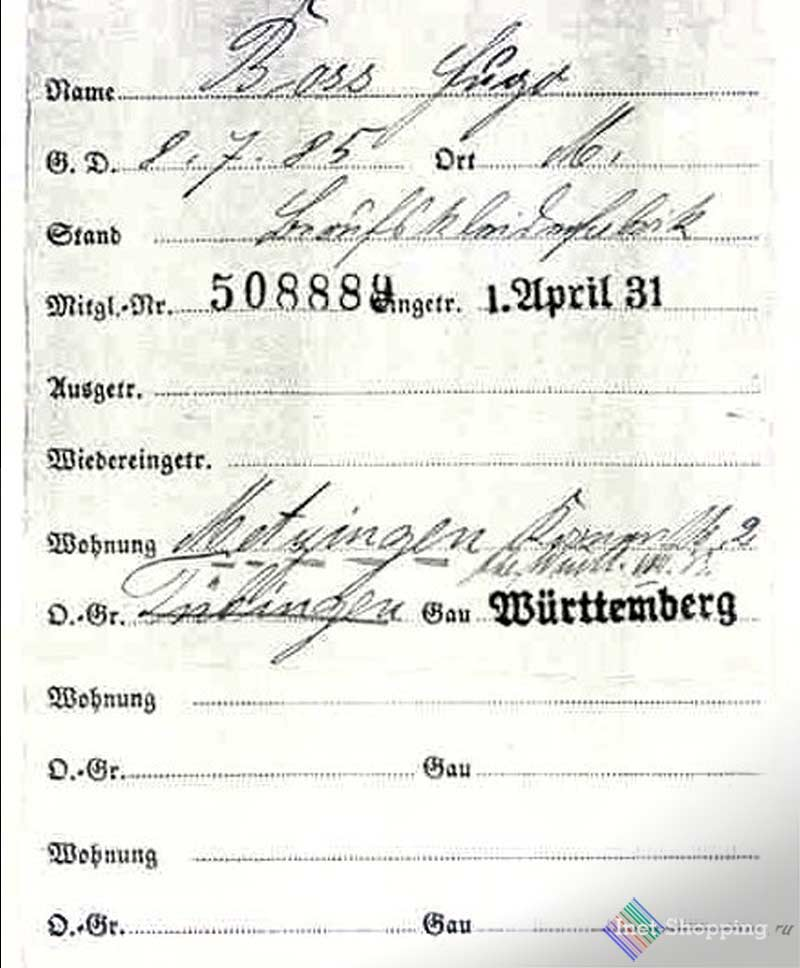 Name Boss Hugo
G. D. 8. 7. 85 Ort M.
Stand Berufskleiderfabrik
Mitgl.-Nr. 508889 Eingetr. 1. April 31
Ausgetr.
Wiedereingetr.
Wohnung Metzingen 2
O.-Gr. Tübingen Gau Württemberg
Wohnung
O.-Gr. Gau
Wohnung
O.-Gr. Gau
Inet Shopping ru